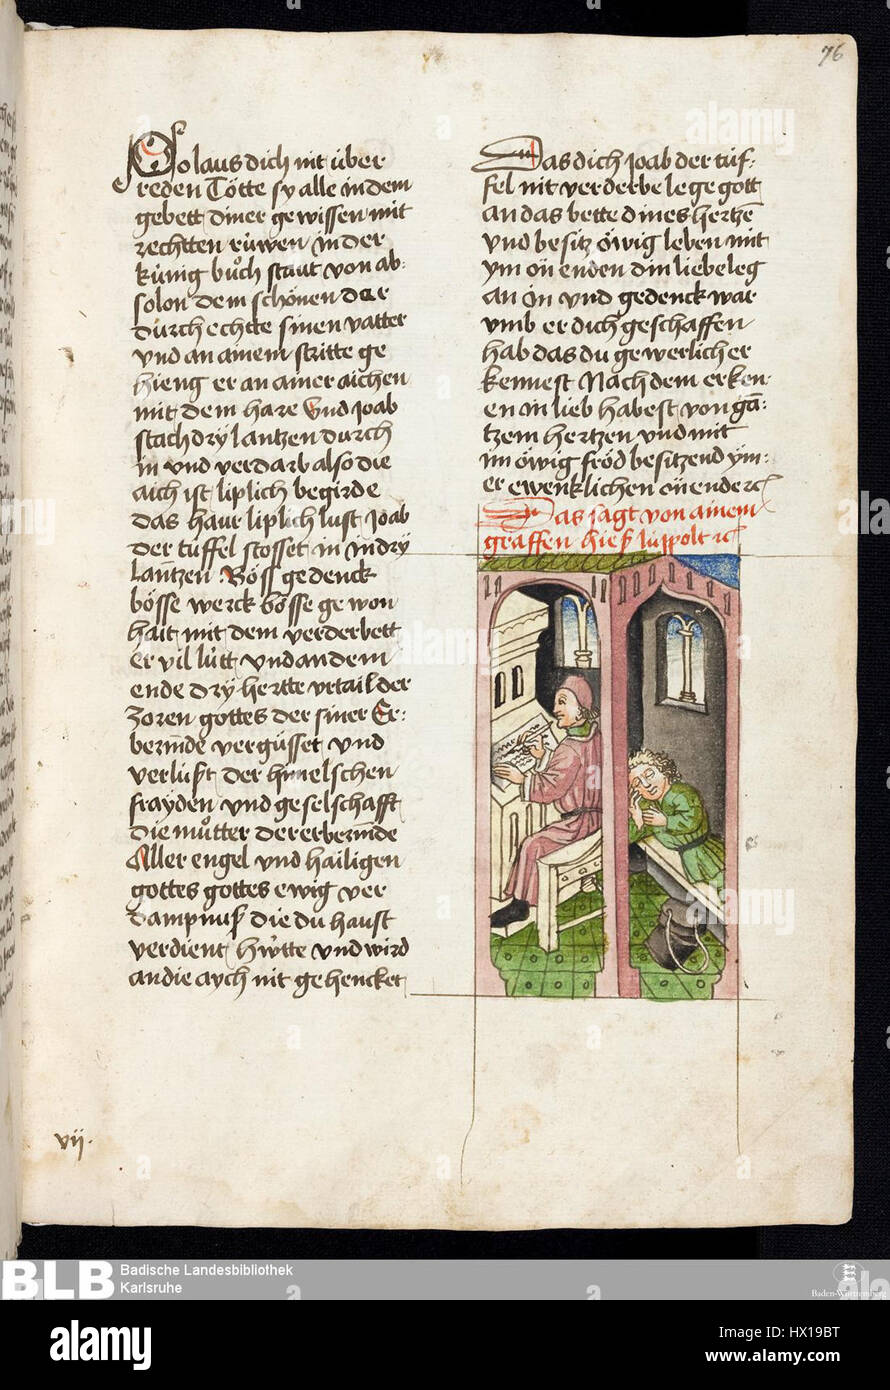 76
So laus dich nit über
reden Tötte sy alle in dem
gebett diner gewissen mit
rechtten rüwen in der
künig bůch staut von ab:
solon dem schönen der
durchechtte sinen vatter
vnd an ainem stritte ge
hieng er an ainer aichen
mit dem hare Vnd Joab
stach dry lantzen durch
in vnd verdarb also die
aich ist liplich begirde
das haur liplich lust Joab
der tüffel stosset in in dry
lantzen Böss gedenck
bösse werck bösse gewon
hait mit dem verderbett
er vil lütt vnd an dem
ende dry hertte vrtail der
zoren gottes der siner Er:
bermde vergüsset vnd
verlürst der himelschen
frayden vnd geselschafft
die můtter der erbermde
Aller engel vnd hailigen
gottes gottes ewig ver
dampnuß die du haust
verdient hütte vnd wird
an die aych nit gehencket
Das dich Joab der tüf:
fel nit verderbe lege gott
an das bette dines hertzen
vnd besitz öwig leben mit
ym on enden din liebe leg
an in vnd gedenck war
vmb er dich geschaffen
hab das du gewerlich er
kennest Nach dem erken:
en in lieb habest von gā:
tzem hertzen vnd mit
im öwig fröd besitzend ym:
er ewenklichen on ende rc
Das sagt von ainem
graffen hieß lüppolt rc
vij.
BLB
Badische Landesbibliothek
Karlsruhe
Baden-Württemberg
alamy
Image ID: HX19BT
www.alamy.com